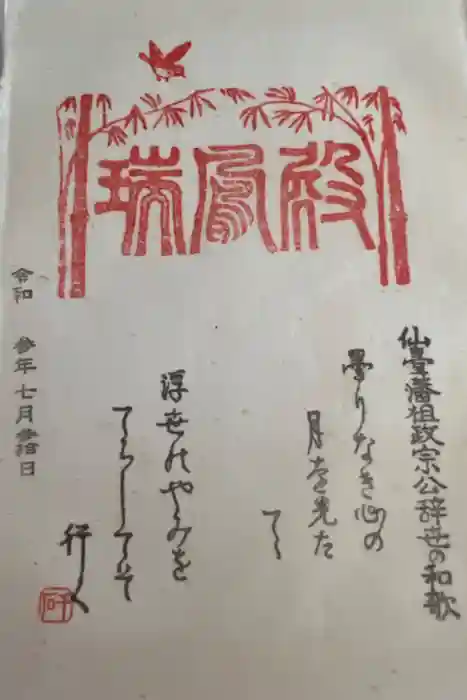 瑞鳳殿
仙臺藩祖政宗公辞世の和歌
曇りなき心の
月を先た
てゝ
浮世のやみを
てらしてそ
行く
令和 参年七月参拾日